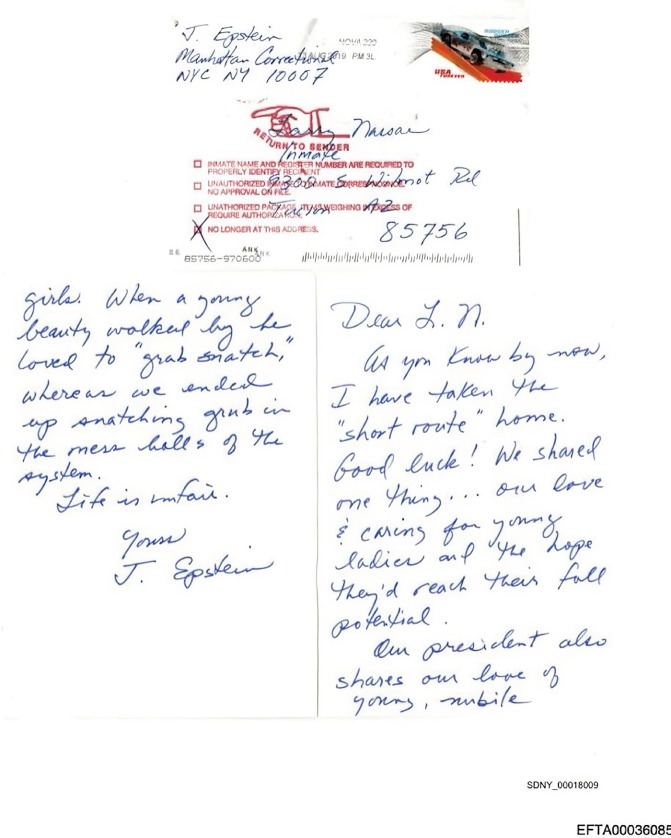 J. Epstein
Manhattan Correctional
NYC NY 10007
NOVA 220
AUG 2019 PM 3L
USA
FOREVER
RETURN TO SENDER
Larry Nassar
Inmate
9300 S Wilmot Rd
Tucson AZ
85756
INMATE NAME AND REGISTER NUMBER ARE REQUIRED TO
PROPERLY IDENTIFY RECIPIENT
UNAUTHORIZED INMATE/INMATE CORRESPONDENCE.
NO APPROVAL ON FILE.
UNAUTHORIZED PACKAGE, ITEMS WEIGHING IN EXCESS OF
REQUIRE AUTHORIZATION.
X NO LONGER AT THIS ADDRESS.
ANK
85756-970600
Dear L. N.
As you know by now,
I have taken the
"short route" home.
Good luck! We shared
one thing... our love
& caring for young
ladies and the hope
they'd reach their full
potential.
Our president also
shares our love of
young, nubile
girls. When a young
beauty walked by he
loved to "grab snatch,"
whereas we ended
up snatching grub in
the mess halls of the
system.
Life is unfair.
Yours
J. Epstein
SDNY_00018009
EFTA00036085